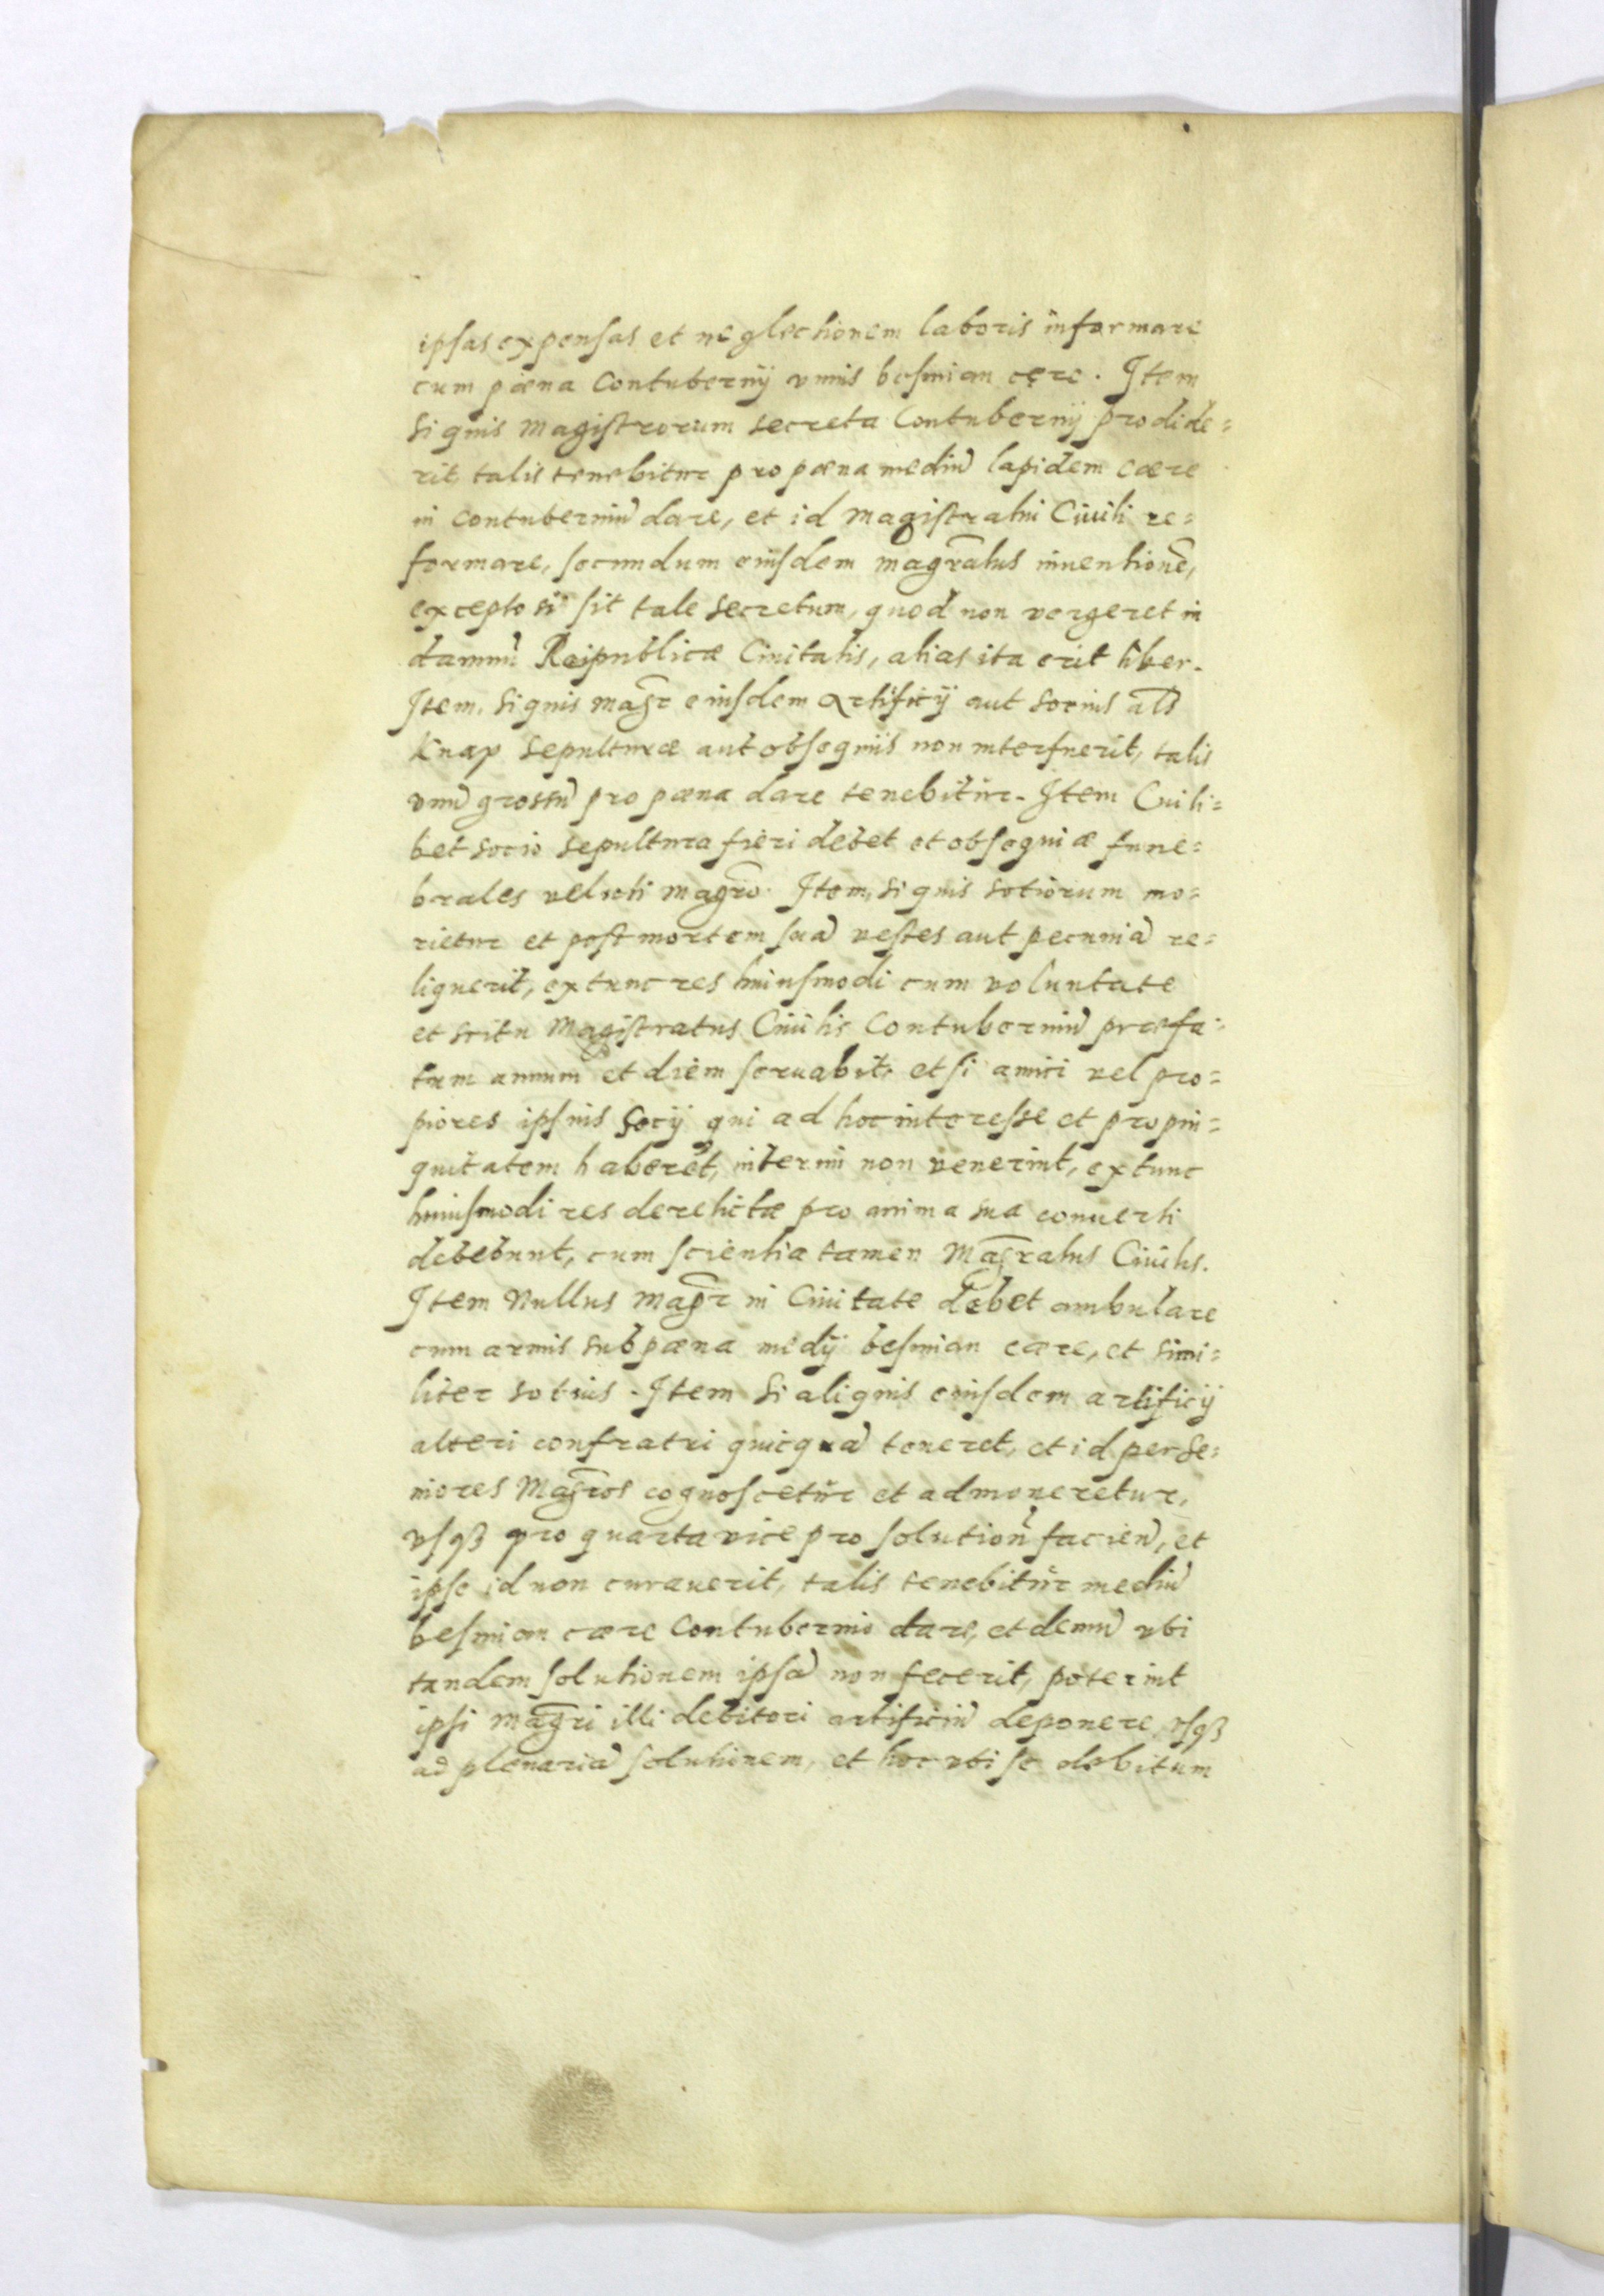 ipsas expensas et neglectionem laboris informare
cum pæna Contubernij vnius besmian cere. Item
si quis Magistrorum secreta Contubernij prodide=
rit talis tenebitur pro pæna mediū lapidem cære
in Contuberniū dare, et id Magistratui Ciuili re=
formare, secundum eiusdem Magr̃atus inuentionē,
excepto si sit tale secretum, quod non vergeret in
damnū Reipublicæ Ciuitatis, alias ita erit liber.
Item, si quis Magr̃ eiusdem Artificij aut socius als̃
Knap sepulturæ aut obsequijs non interfuerit, talis
vnū grossū pro pæna dare tenebitur. Item Cuili=
bet socio sepultura fieri debet et obsequiæ fune=
brales veluti Magr̃o. Item, si quis sotiorum mo=
rietur et post mortem suā vestes aut pecuniā re=
liquerit, extunc res huiusmodi cum voluntate
et scitu Magistratus Ciuilis Contuberniū præfa=
tum annum et diem seruabit, et si amici vel pro=
piores ipsius Socij qui ad hoc interesse et propin=
quitatem haberēt, interim non venerint, extunc
huiusmodi res derelictæ pro anima sua conuerti
debebunt, cum scientia tamen Magr̃atus Ciuilis.
Item Nullus Magr̃ in Ciuitate debet ambulare
cum armis sub pæna medij besmian cære, et simi=
liter sotius. Item Si aliquis eiusdem artificij
alteri confratri quicquā teneret, et id per Se=
niores Magr̃os cognoscetur et admoneretur,
vsqȝ pro quarta vice pro solution̄ faciēn, et
ipse id non curauerit, talis tenebitur mediū
besmian cære Contubernio dare, et demū vbi
tandem solutionem ipsā non fecerit, poterint
ipsi Magr̃i illi debitori artificiū deponere, vsqȝ
ad plenariā solutionem, et hoc vbi se debitum